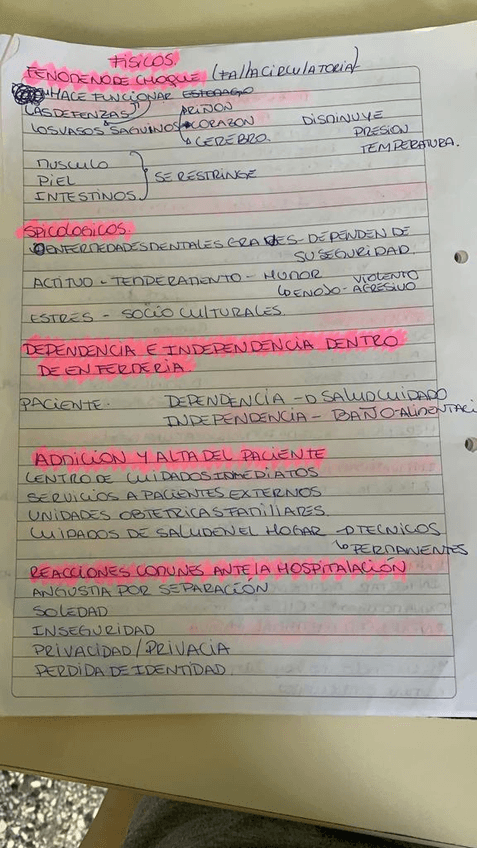 FISICOS.
FENOMENO DE CHOQUE (FALLA CIRCULATORIA)
HACE FUNCIONAR ESTOMAGO
LAS DEFENZAS RIÑON
LOS VASOS SAGUINOS CORAZON DISMINUYE
CEREBRO. PRESION
TEMPERATURA.
MUSCULO
PIEL SE RESTRINGE
INTESTINOS
SPICOLOGICOS.
ENFERMEDADES MENTALES GRAVES - DEPENDEN DE
SU SEGURIDAD.
ACTITUD - TEMPERAMENTO - HUMOR VIOLENTO
ENOJO - AGRESIVO
ESTRES - SOCIO CULTURALES.
DEPENDENCIA E INDEPENDENCIA DENTRO
DE ENFERMERIA
PACIENTE. DEPENDENCIA → SALUD CUIDADO
INDEPENDENCIA - BAÑO-ALIMENTACI
ADMICION Y ALTA DEL PACIENTE
CENTRO DE CUIDADOS INMEDIATOS
SERVICIOS A PACIENTES EXTERNOS
UNIDADES OBTETRICAS FAMILIARES
CUIDADOS DE SALUD EN EL HOGAR → TECNICOS
PERMANENTES
REACCIONES COMUNES ANTE LA HOSPITALACIÓN
ANGUSTIA POR SEPARACIÓN
SOLEDAD
INSEGURIDAD
PRIVACIDAD / PRIVACIA
PERDIDA DE IDENTIDAD